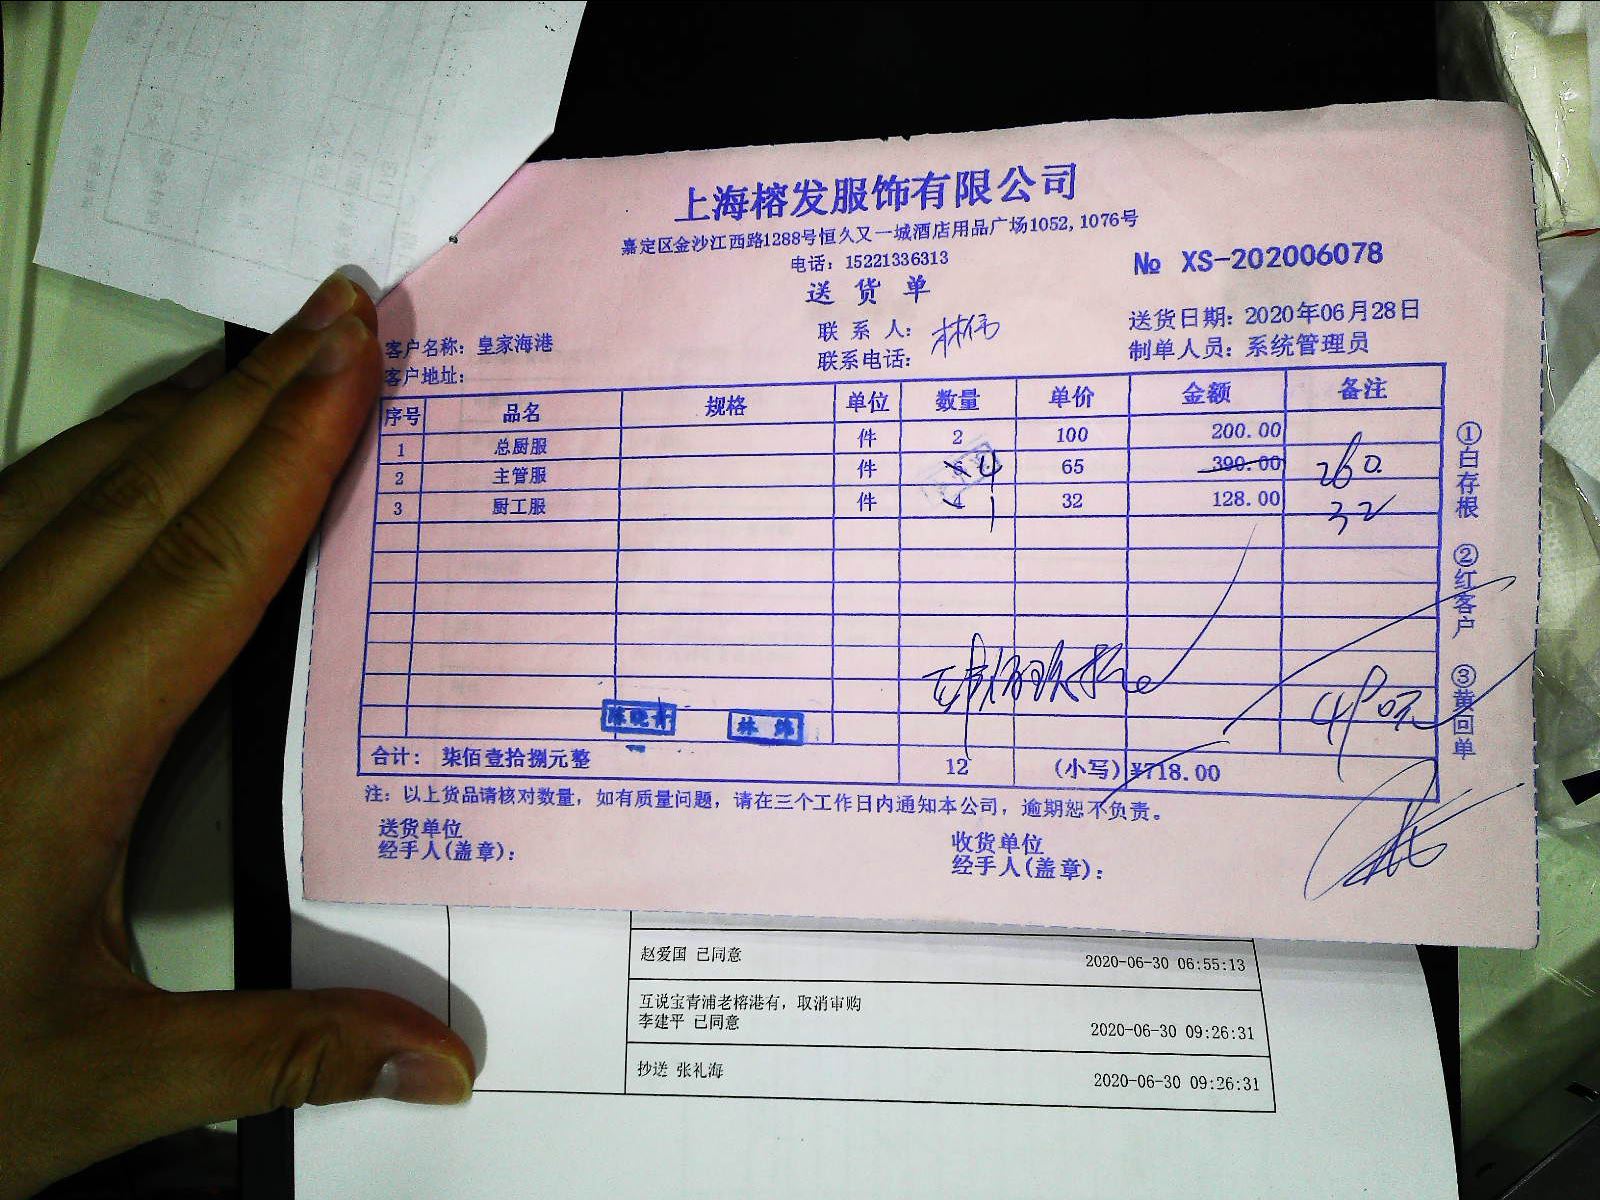 上海榕发服饰有限公司
嘉定区金沙江西路1288号恒久又一城酒店用品广场1052,1076号
电话：15221336313
№ XS-202006078
送货单
客户名称：皇家海港
联系人：林伟
送货日期：2020年06月28日
客户地址：
联系电话：
制单人员：系统管理员
序号 品名 规格 单位 数量 单价 金额 备注
1 总厨服 件 2 100 200.00
2 主管服 件 6 4 65 390.00 260.
3 厨工服 件 4 1 32 128.00 32
①白存根 ②红客户 ③黄回单
林伟
合计：柒佰壹拾捌元整 12 (小写) ¥718.00
注：以上货品请核对数量，如有质量问题，请在三个工作日内通知本公司，逾期恕不负责。
送货单位
经手人(盖章)：
收货单位
经手人(盖章)：
赵爱国 已同意 2020-06-30 06:55:13
互说宝青浦老榕港有，取消审购
李建平 已同意 2020-06-30 09:26:31
抄送 张礼海 2020-06-30 09:26:31